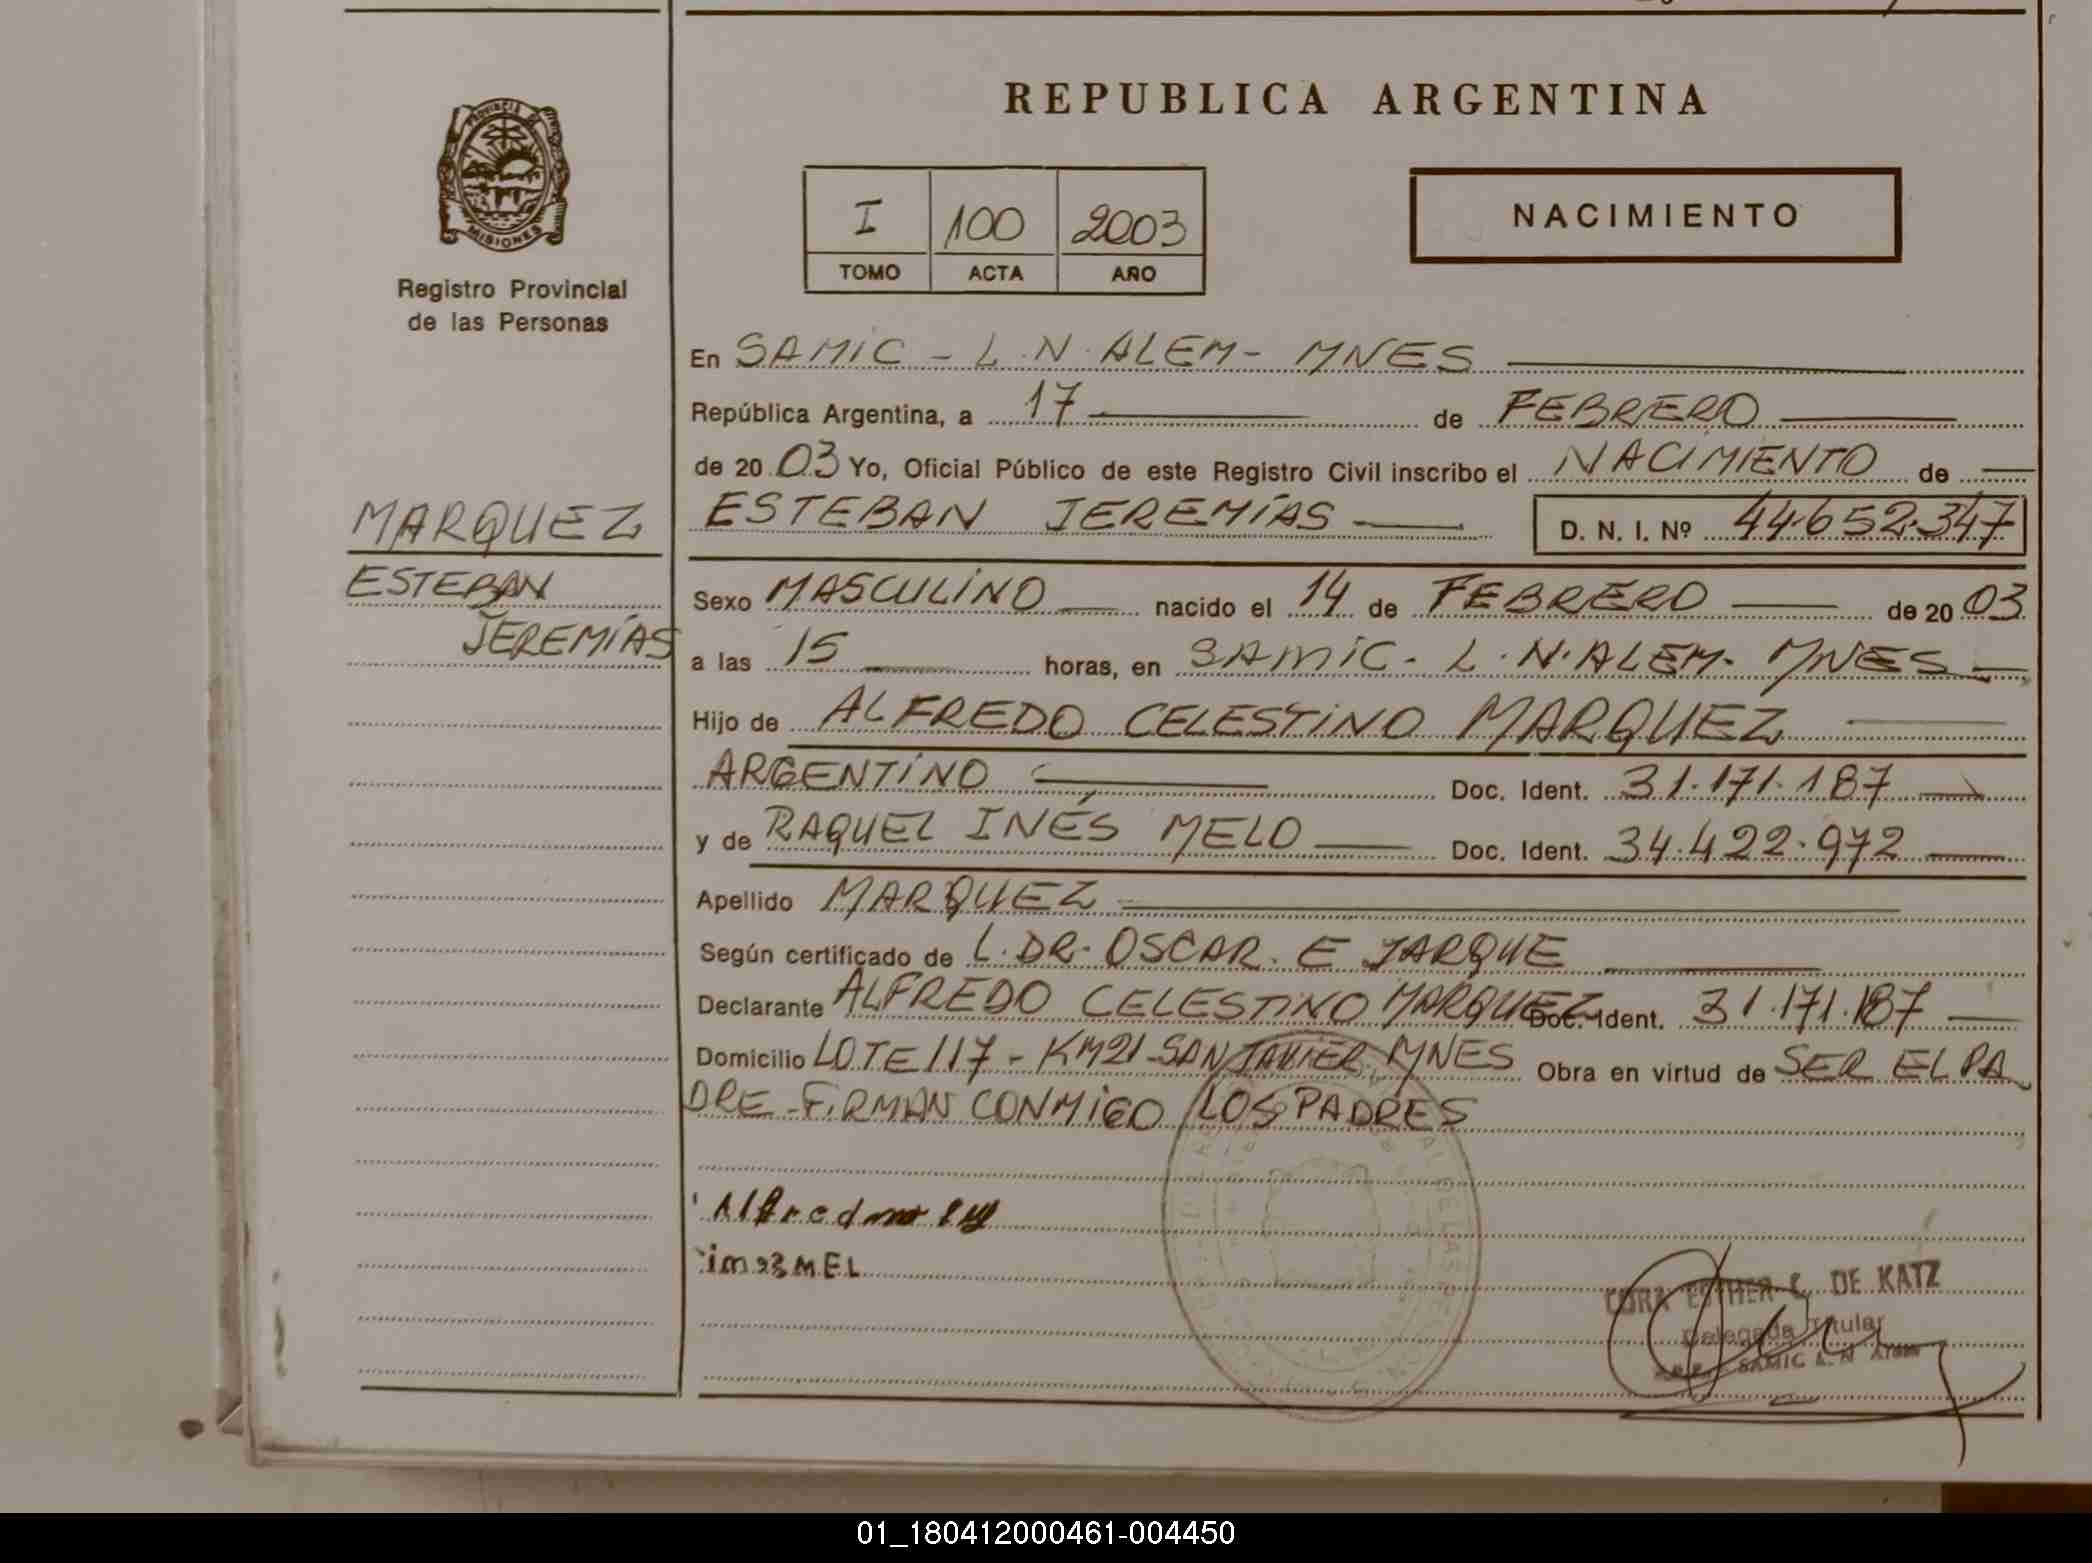 REPUBLICA ARGENTINA
PROVINCIA DE
MISIONES
Registro Provincial
de las Personas
I 100 2003
TOMO ACTA AÑO
NACIMIENTO
En SAMIC - L.N. ALEM - MNES
República Argentina, a 17 de FEBRERO
de 20 03 Yo, Oficial Público de este Registro Civil inscribo el NACIMIENTO de
MARQUEZ
ESTEBAN
JEREMÍAS
ESTEBAN JEREMÍAS D. N. I. Nº 44.652.347
Sexo MASCULINO nacido el 14 de FEBRERO de 20 03
a las 15 horas, en SAMIC - L.N. ALEM - MNES
Hijo de ALFREDO CELESTINO MARQUEZ
ARGENTINO Doc. Ident. 31.171.187
y de RAQUEL INÉS MELO Doc. Ident. 34.422.972
Apellido MARQUEZ
Según certificado de L. DR. OSCAR. E JARQUE
Declarante ALFREDO CELESTINO MARQUEZ Doc. Ident. 31.171.187
Domicilio LOTE 117 - KM21 - SAN JAVIER. MNES Obra en virtud de SER EL PA
DRE - FIRMAN CONMIGO LOS PADRES
CORA ESTHER DE KATZ
Delegada Titular
SAMIC L. N. Alem
01_180412000461-004450